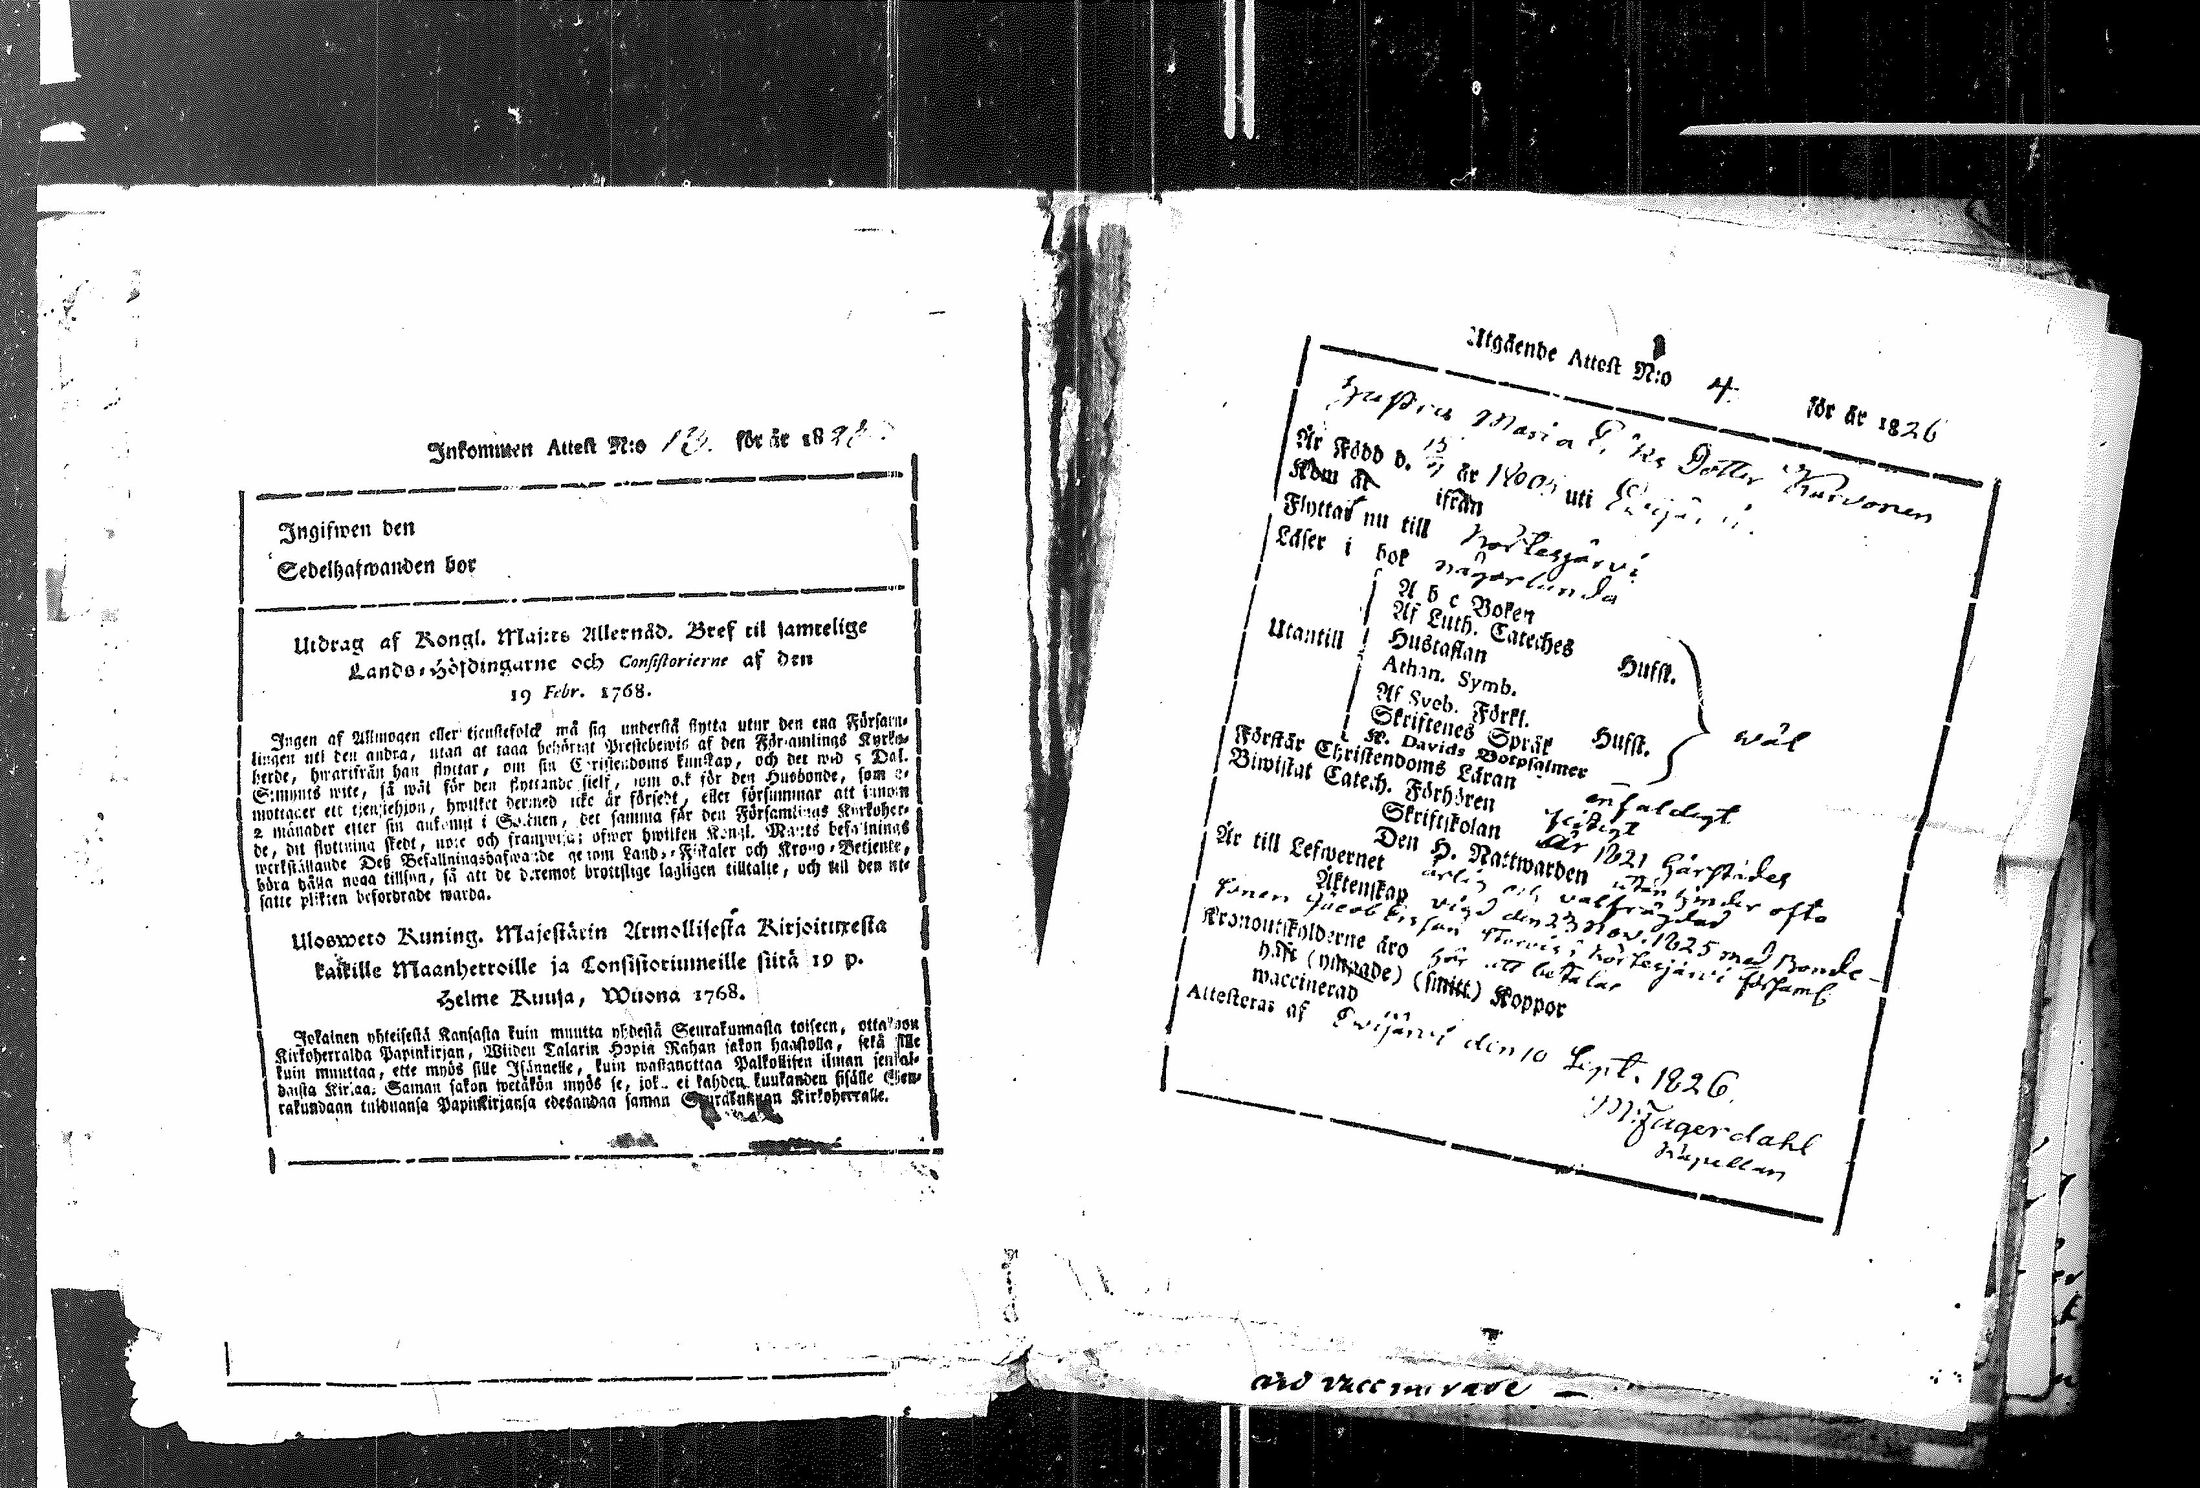 Inkommen Attest N:o 13. för år 182
Ingifwen den
Sedelhafwanden bor
Utdrag af Kongl. Maj:ts Allernåd. Bref til samtelige
Lands-Höfdingarne och Consistorierne af den
19 Febr. 1768.
Ingen af Allmogen eller tjenstefolck må sig understå flytta utur den ena Försam-
lingen uti den andra, utan at taga behörigt Prestebewis af den Församlings Kyrko-
herde, hwarifrån han flyttar, om sin Christendoms kunskap, och det wid 5 Dal.
S:mynts wite, så wäl för den flyttande sielf, som ock för den Husbonde, som
mottager ett tjenstehjon, hwilket dermed icke är försedt, eller försummar att innom
2 månader efter sin ankomst i Socknen, det samma för den Församlings Kyrkoher-
de, dit flyttning skedt, upte och framwisa; öfwer hwilken Kongl. Maj:ts befallnings
werkställande Deß Befallningshafwande genom Lands-Fiskaler och Krono-Betjente,
böra hålla noga tillsyn, så att de deremot brottslige lagligen tilltalte, och till den
satte plikten befordrade warda.
Ulosweto Kuning. Majestätin Armollisesta Kirjoituxesta
kaikille Maanherroille ja Consistoriumeille siitä 19 p.
Helme Kuusa, Wuona 1768.
Jokainen yhteisestä Kansasta kuin muutta yhdestä Seurakunnasta toiseen, ottakoon
Kirkoherralda Papinkirjan, Wiiden Talarin Hopia Rahan sakon haastolla, sekä sille
kuin muuttaa, ette myös sille Isännelle, kuin wastanottaa Palkollisen ilman
Kirjaa: Saman sakon wetäkön myös se, joka ei kahden kuukanden sisälle Seu-
rakundaan tulduansa Papinkirjansa edesandaa saman Seurakunnan Kirkoherralle.
Utgående Attest N:o 4. för år 1826
Hustru Maria Eriks Dotter Kurvonen
Är Född d. 13/7 år 180 uti Ewijärvi.
Kom år ifrån
Flyttar nu till Kortesjärvi
Läser i bok någorlunda
A b c Boken
Af Luth. Cateches
Utantill Hustaflan Hufst.
Athan. Symb. wäl
Af Sveb. Förkl.
Skriftenes Språk Hufst.
K. Davids Botpsalmer
Förstår Christendoms Läran enfaldigt
Biwistat Catech. Förhören flitigt
Skriftskolan År 1821 härstädes
Den H. Nattwarden utan hinder ofta
Är till Lefwernet ärlig och välfrägdad
Äktenskap vigd den 23 Nov. 1825 med Bonde-
sonen Jacob Ersson i Kortesjärvi församl.
Kronoutskylderne äro här att betalas
Haft (ympade) (smitt.) Koppor
waccinerad
Attesteras af Ewijärvi den 10 Sept. 1826.
M: Fagerdahl
Kapellan